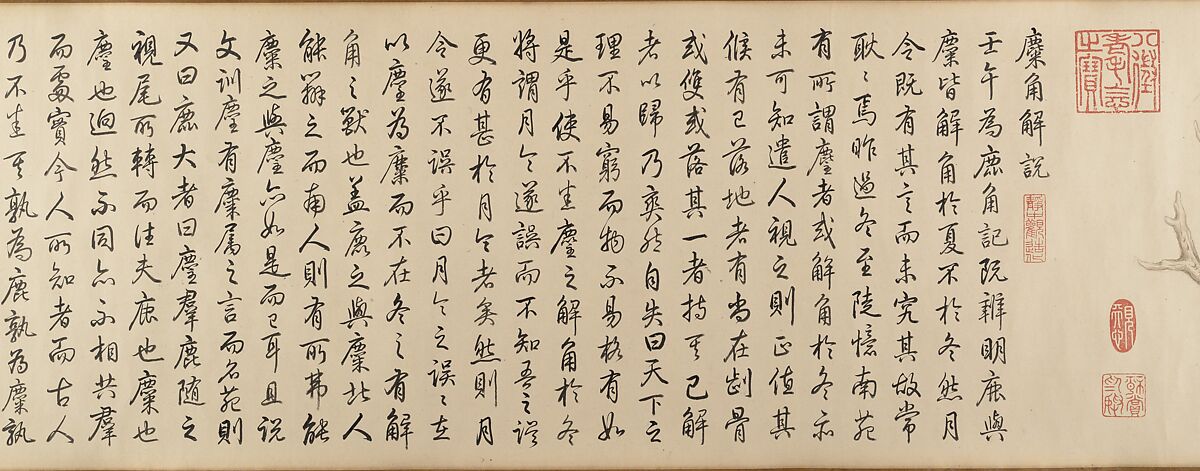 麋角解說
壬午為鹿角記既辨明鹿與
麋皆解角於夏不於冬然月
令既有其言而未究其故常
耿々焉昨過冬至陡憶南苑
有所謂麈者或解角於冬亦
未可知遣人視之則正值其
候有已落地者有尚在剖骨
或雙或落其一者持其已解
者以歸乃爽然自失曰天下之
理不易窮而物不易格有如
是乎使不生麈之解角於冬
將謂月令遂誤而不知吾之誤
更有甚於月令者矣然則月
令遂不誤乎曰月令之誤々在
以麈為麋而不在冬之有解
角之獸也蓋鹿之與麋北人
能辨之而南人則有所弗能
麋之與麈亦如是而已耳且說
文訓麈有麋屬之言而名苑則
又曰鹿大者曰麈羣鹿隨之
視尾所轉而往夫鹿也麋也
麈也迥然不同亦不相共羣
而處實今人所知者而古人
乃不生其孰為鹿孰為麋孰
八徵耄念之寶